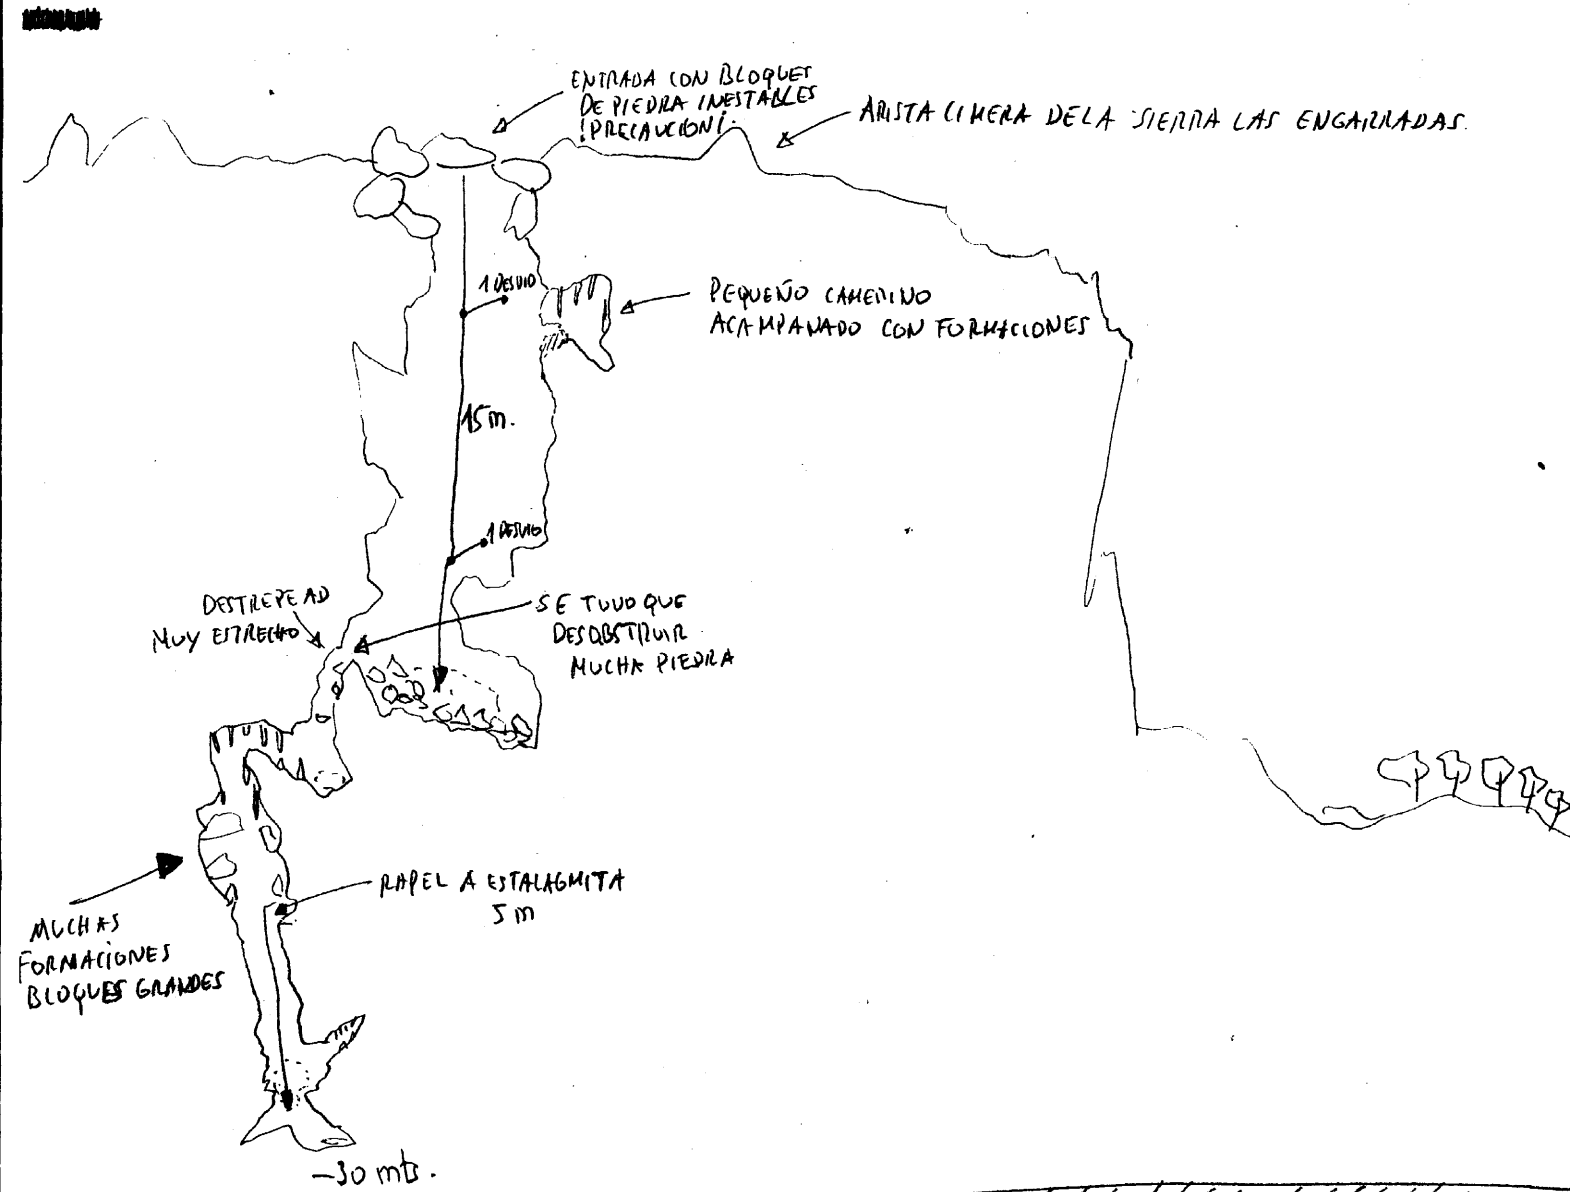 ENTRADA CON BLOQUES
DE PIEDRA INESTABLES
!PRECAUCION¡.
ARISTA CIMERA DE LA SIERRA LAS ENGARRADAS.
1 DESVIO
PEQUEÑO CAMERINO
ACAMPANADO CON FORMACIONES
15 m.
1 DESVIO
DESTREPE AD
MUY ESTRECHO
SE TUVO QUE
DESOBSTRUIR
MUCHA PIEDRA
RAPEL A ESTALAGMITA
5 m
MUCHAS
FORMACIONES
BLOQUES GRANDES
-30 mts.